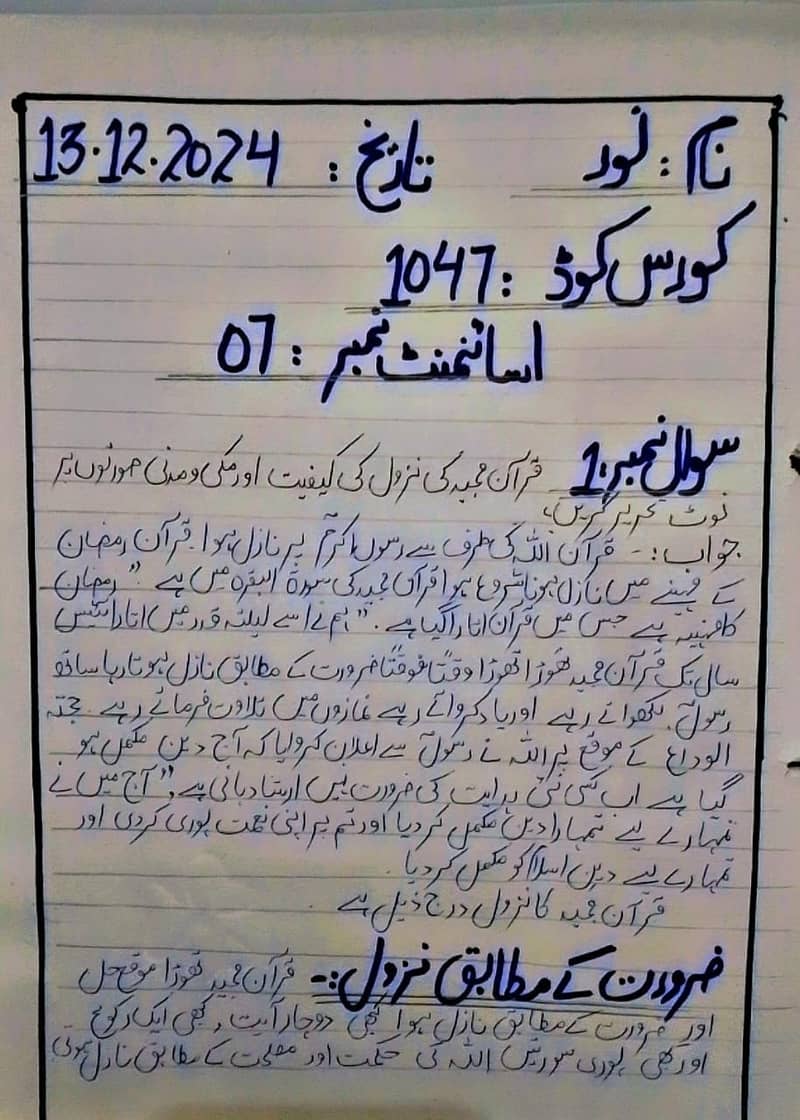 نام : نور تاریخ : 13.12.2024
کورس کوڈ : 1047
اسائنمنٹ نمبر : 07
سوال نمبر:1 قرآن مجید کی نزول کی کیفیت اور مکی و مدنی صورتوں پر
نوٹ تحریر کریں،
جواب :- قرآن اللہ کی طرف سے رسول اکرمؐ پر نازل ہوا۔ قرآن رمضان
کے مہینے میں نازل ہونا شروع ہوا قرآن مجید کی سورۃ البقرہ میں ہے "رمضان
کا مہینہ ہے جس میں قرآن اتارا گیا ہے۔" ہم نے اسے لیلتہ قدر میں اتارا تئیس
سال تک قرآن مجید تھوڑا تھوڑا وقتاً فوقتاً ضرورت کے مطابق نازل ہوتا رہا ساتھ
رسولؐ لکھواتے رہے اور یاد کرواتے رہے نمازوں میں تلاوت فرماتے رہے۔ حجتہ
الوداع کے موقع پر اللہ نے رسولؐ سے اعلان کروایا کہ آج دین مکمل ہو
گیا ہے اب کسی نئی ہدایت کی ضرورت نہیں ارشاد بانی ہے،" آج میں نے
تمہارے لیے تمہارا دین مکمل کر دیا اور تم پر اپنی نعمت پوری کردی اور
تمہارے لیے دین اسلام کو مکمل کر دیا۔
قرآن مجید کا نزول درج ذیل ہے۔
ضرورت کے مطابق نزول :- قرآن مجید تھوڑا موقع حل
اور ضرورت کے مطابق نازل ہوا کبھی دوچار آیت، کبھی ایک رکوع
اور کبھی پوری سورتیں اللہ کی حکمت اور مصلحت کے مطابق نازل ہوتی